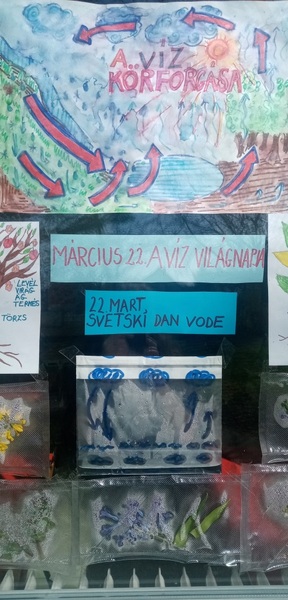 A VÍZ
KÖRFORGÁSA
MÁRCIUS 22. A VÍZ VILÁGNAPJA
22 MART.
SVETSKI DAN VODE
LEVÉL
VIRÁG
ÁG
TERMÉS
TÖRZS